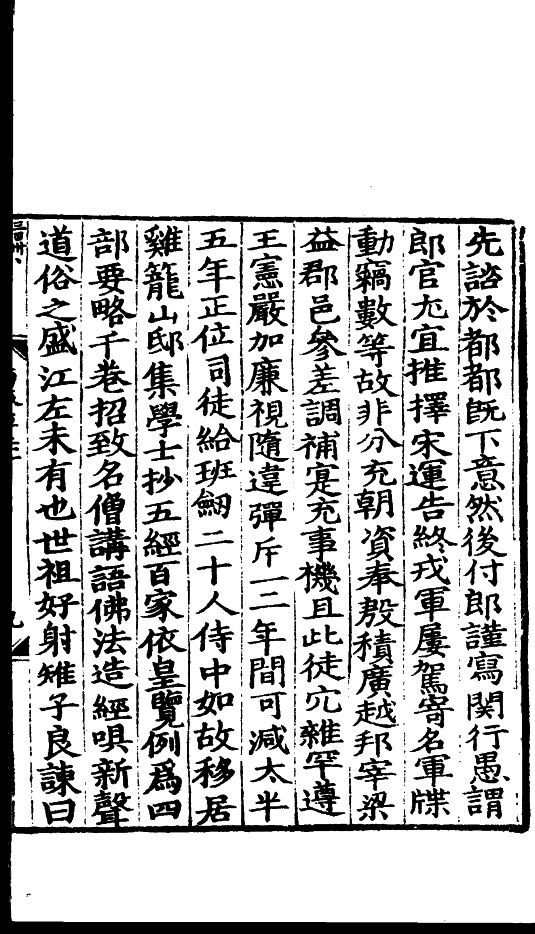 先諮於都都旣下意然後付郎謹寫関行愚謂
郎官尢宜推擇宋運告終戎軍屢駕寄名軍牒
動竊數等故非分充朝資奉殷積廣越邦宰梁
益郡邑參差調補寔充事機且此徒冗雜罕遵
王憲嚴加廉視隨違彈斥一二年間可減太半
五年正位司徒給班劒二十人侍中如故移居
雞籠山邸集學士抄五經百家依皇覽例爲四
部要略千卷招致名僧講語佛法造經唄新聲
道俗之盛江左未有也世祖好射雉子良諫曰